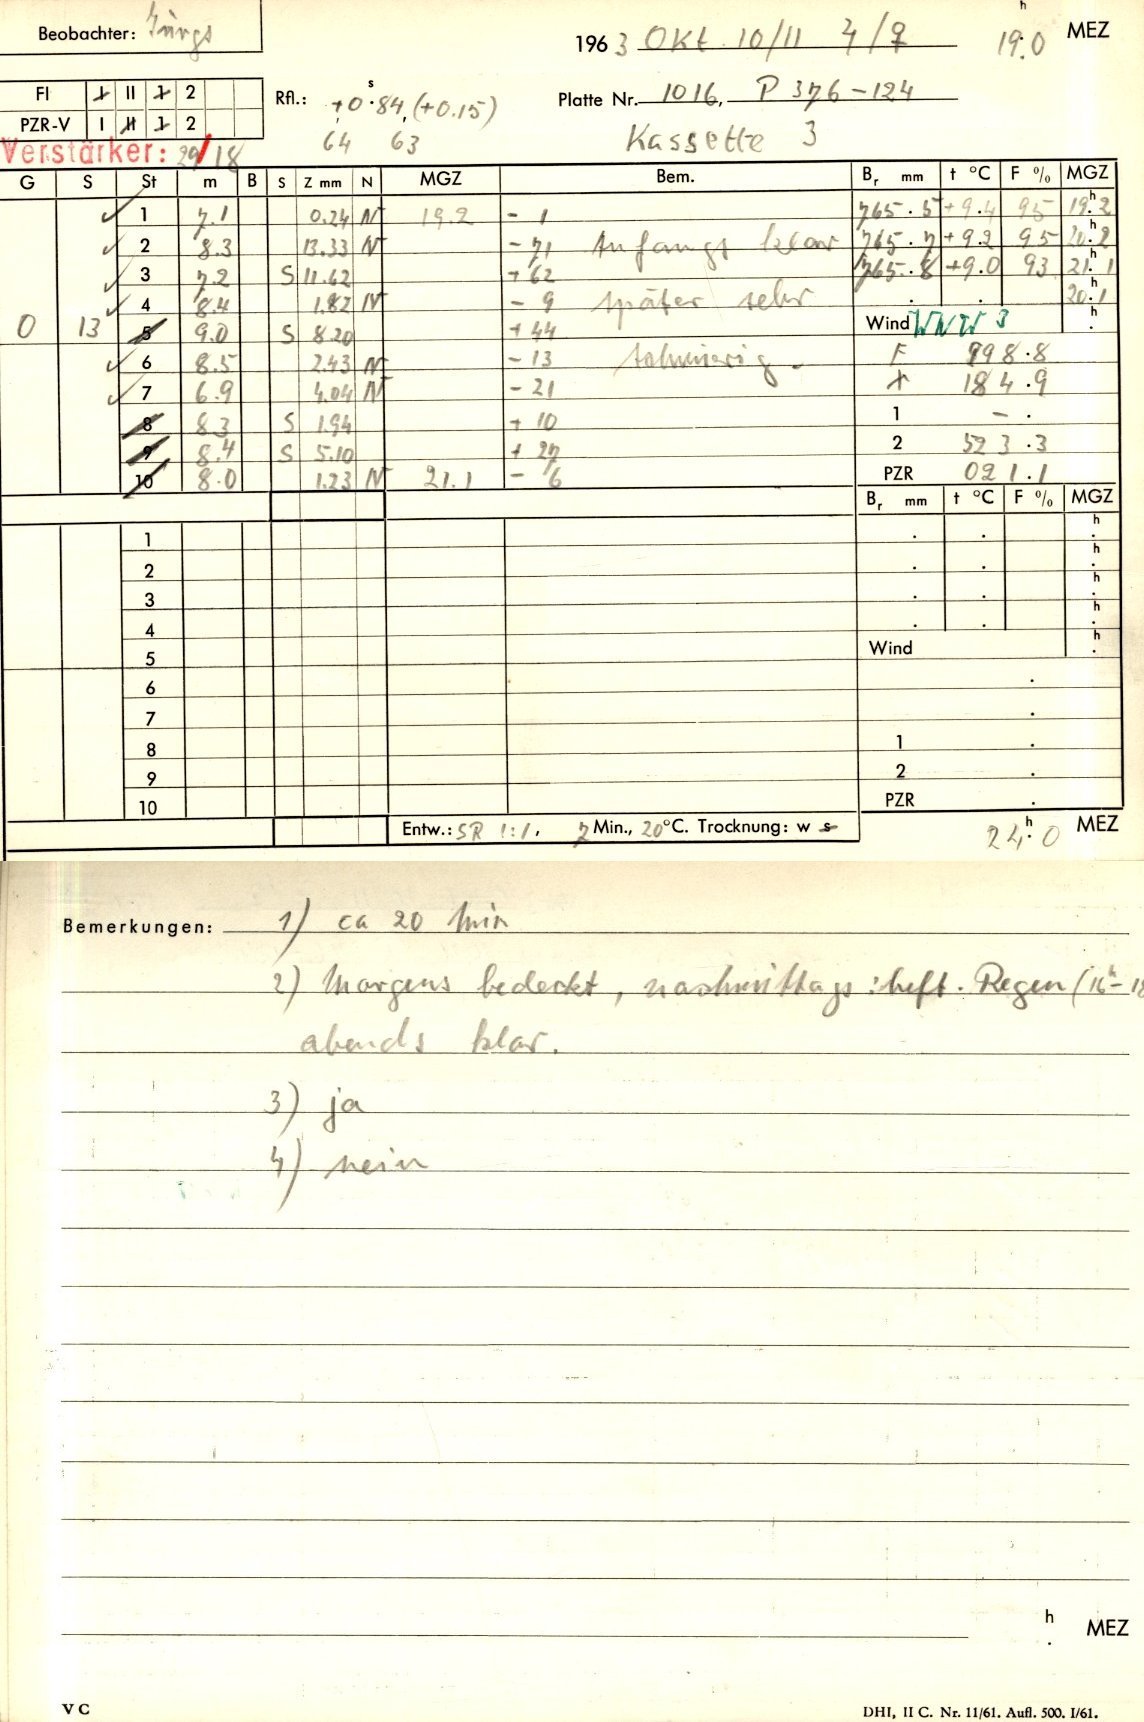 Beobachter: Jürgs
1963 Okt. 10/11 4/♀ 19h.0 MEZ
FI I II 1 2
PZR-V I II 1 2
Rfl.: +0s.84, (+0.15)
64 63
Platte Nr. 1016, P 376-124
Kassette 3
Verstärker: 29/18
G S St m B S Z mm N MGZ Bem. Br mm t °C F % MGZ
1 7.1 0.24 N 19.2 - 1 765.5 +9.4 95 19h.2
2 8.3 13.33 N - 71 Anfangs klar 765.7 +9.2 95 20h.2
3 7.2 S 11.62 + 62 765.8 +9.0 93 21h.1
4 8.4 1.82 N - 9 später sehr . . 20h.1
0 13 5 9.0 S 8.20 + 44 Wind WNW 3 h.
6 8.5 2.43 N - 13 schmierig. F 998.8
7 6.9 4.04 N - 21 184.9
8 8.3 S 1.94 + 10 1 - .
9 8.4 S 5.10 + 27 2 523.3
10 8.0 1.23 N 21.1 - 6 PZR 021.1
Br mm t °C F % MGZ
1 . . h.
2 . . h.
3 . . h.
4 . . h.
5 Wind h.
6 .
7 .
8 1 .
9 2 .
10 PZR .
Entw.: SR 1:1, 7 Min., 20°C. Trocknung: w s
24h.0 MEZ
Bemerkungen: 1) ca 20 Min
2) Morgens bedeckt, nachmittags heft. Regen (16h-18
abends klar.
3) ja
4) nein
h. MEZ
V C
DHI, II C. Nr. 11/61. Aufl. 500. I/61.